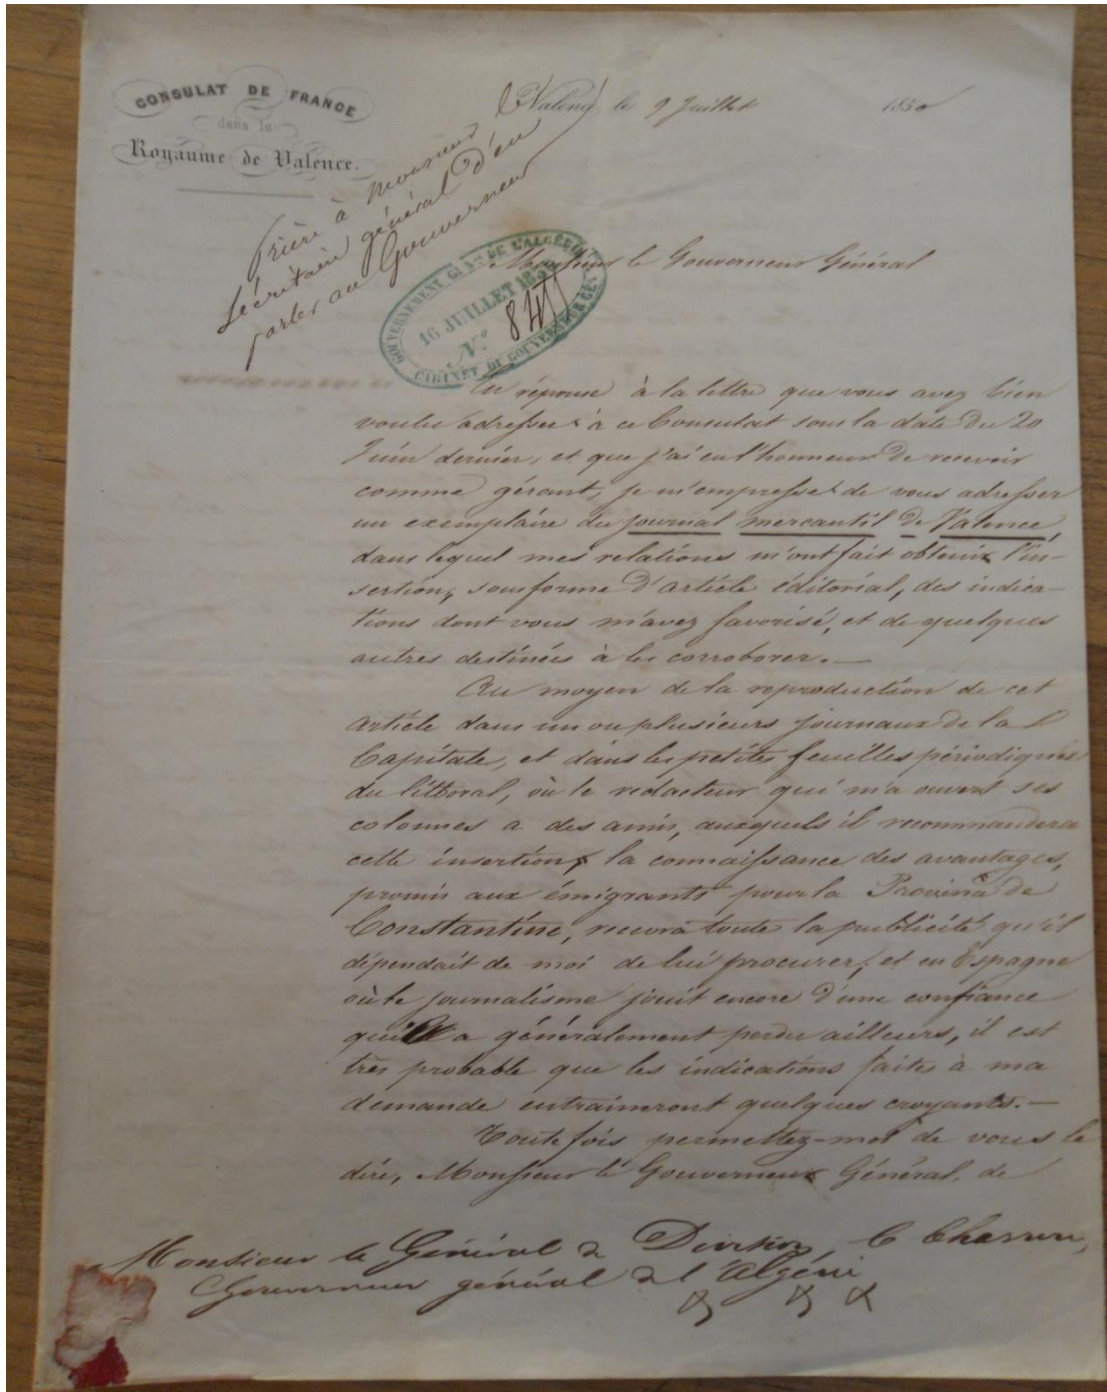 CONSULAT DE FRANCE
dans le
Royaume de Valence.
Valence le 9 Juillet 1850
Prière à Monsieur le
Secrétaire général d'en
parler au Gouverneur
Monsieur le Gouverneur Général
GOUVERNEMENT GÉNal DE L'ALGÉRIE
16 JUILLET 1850
N.º
CABINET DU GOUVERNEUR GÉNal
En réponse à la lettre que vous avez bien
voulu adresser à ce Consulat sous la date du 20
Juin dernier, et que j'ai eu l'honneur de recevoir
comme gérant, je m'empresse de vous adresser
un exemplaire du journal mercantil de Valence,
dans lequel mes relations m'ont fait obtenir l'in-
sertion, sous forme d'article éditorial, des indica-
tions dont vous m'avez favorisé, et de quelques
autres destinées à les corroborer. —
Au moyen de la reproduction de cet
article dans un ou plusieurs journaux de la
Capitale, et dans les petites feuilles périodiques
du littoral, où le rédacteur qui m'a ouvert ses
colonnes a des amis, auxquels il recommandera
cette insertion, la connaissance des avantages,
promis aux émigrants pour la Province de
Constantine, recevra toute la publicité qu'il
dépendait de moi de lui procurer, et en Espagne
où le journalisme jouit encore d'une confiance
qu'il a généralement perdu ailleurs, il est
très probable que les indications faites à ma
demande entraineront quelques croyants. —
Toutefois permettez-moi de vous le
dire, Monsieur le Gouverneur Général, de
Monsieur le Général de Division,
Gouverneur général de l'Algérie